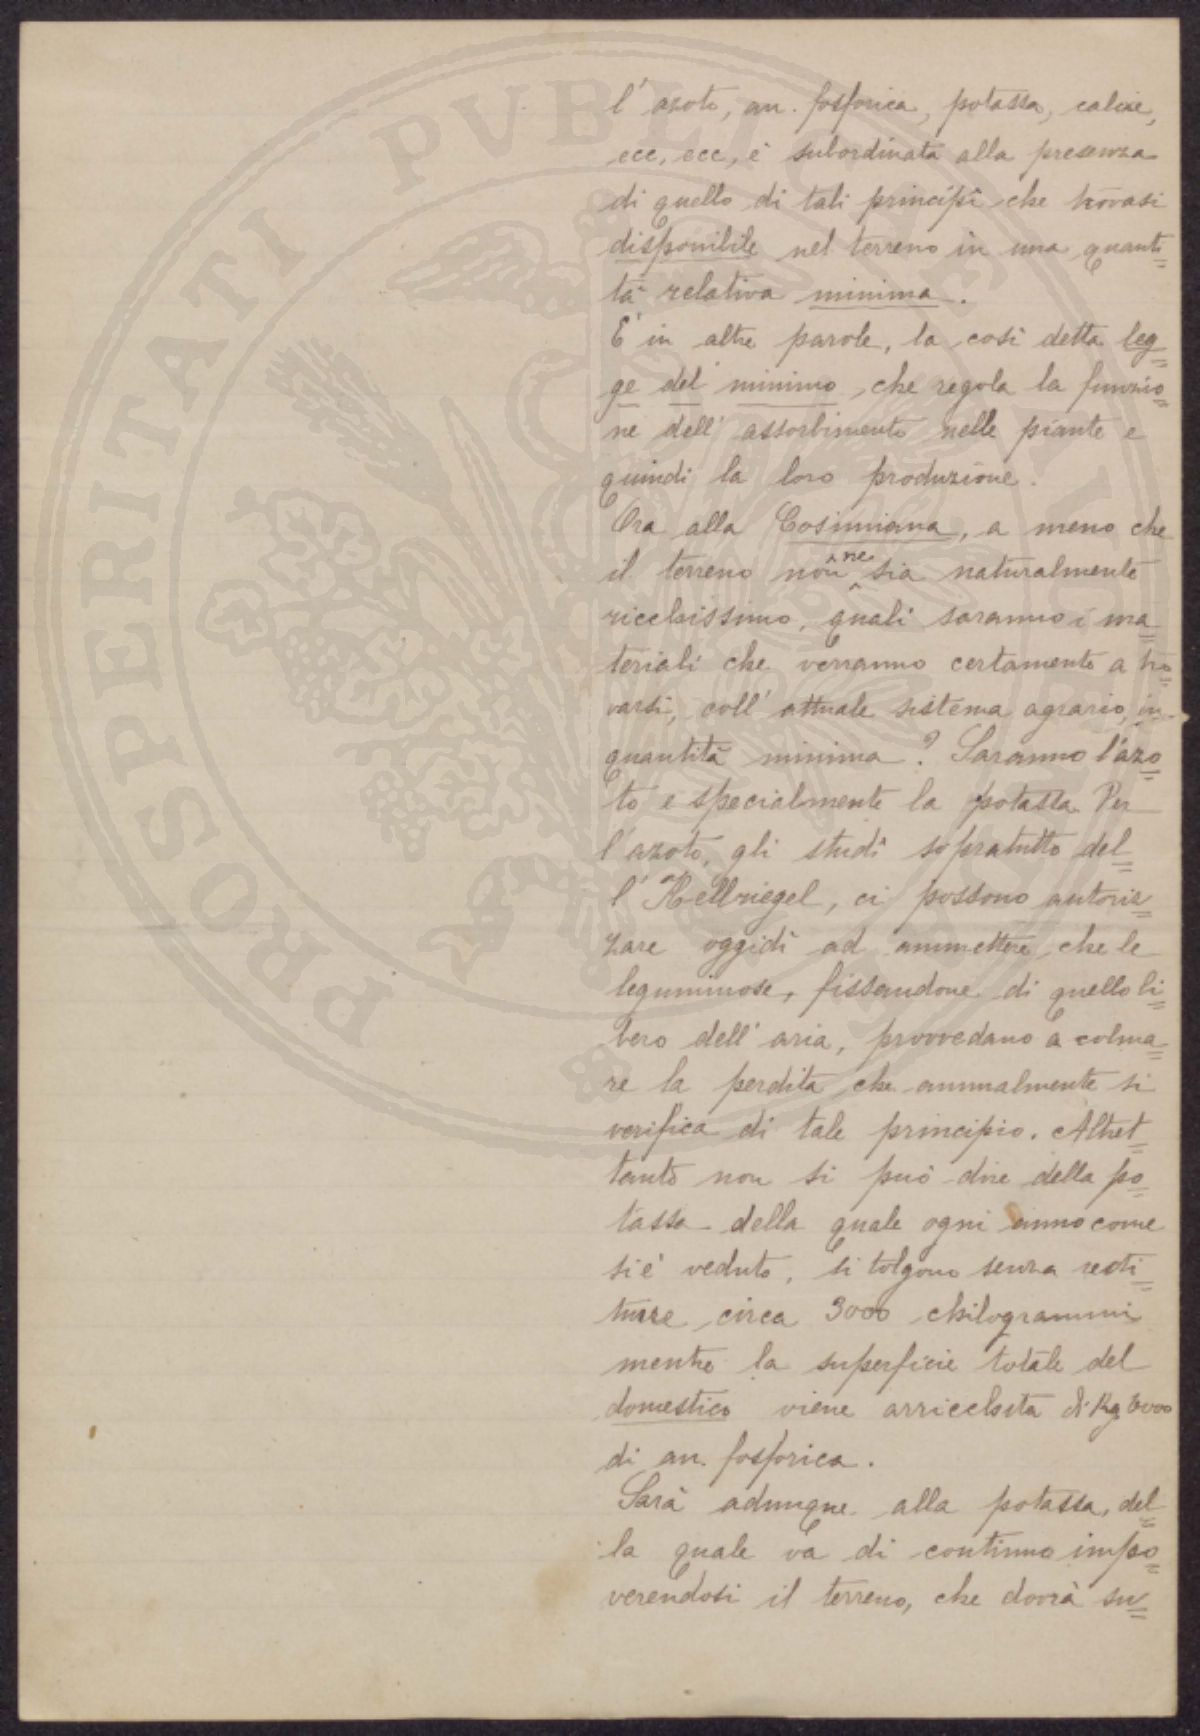 l'azoto, an. fosforica, potassa, calcie,
ecc, ecc, è subordinata alla presenza
di quello di tali principî che trovasi
disponibile nel terreno in una quanti=
tà relativa minima.
E' in altre parole, la così detta leg=
ge del minimo, che regola la funzio=
ne dell'assorbimento nelle piante e
quindi la loro produzione.
Ora alla Cosimiana, a meno che
il terreno non ne sia naturalmente
ricchissimo, quali saranno i ma=
teriali che verranno certamente a tro=
varsi, coll'attuale sistema agrario, in
quantità minima? Saranno l'azo=
to e specialmente la potassa. Per
l'azoto, gli studî sopratutto del=
l'Hellriegel, ci possono autoriz=
zare oggidì ad ammettere che le
leguminose, fissandone di quello li=
bero dell'aria, provvedano a colma=
re la perdita che annualmente si
verifica di tale principio. Altret=
tanto non si può dire della po=
tassa della quale ogni anno come
si è veduto, si tolgono senza resti=
tuire circa 3000 chilogrammi
mentre la superficie totale del
domestico viene arricchita di Kg 6000
di an. fosforica.
Sarà adunque alla potassa, del=
la quale va di continuo impo=
verendosi il terreno, che dovrà su=
PROSPERITATI PVBLICAE